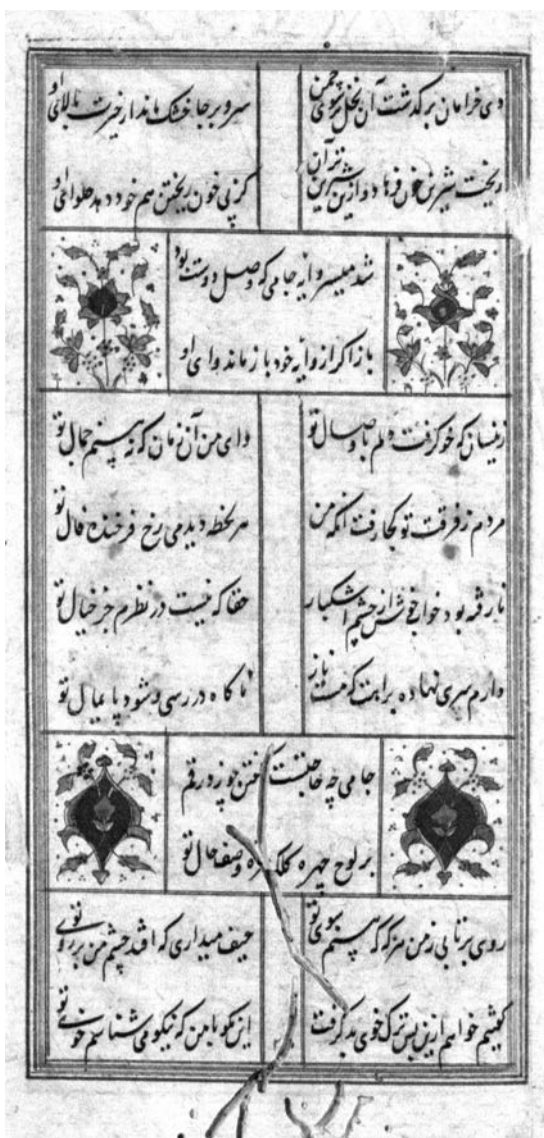 دی خرامان برگذشت آن نخل سوی چمن سرو بر جا خشک ماند از حیرت بالای او
ریخت شیرین خون فرهاد و ازین شیرین تر آن کز پی خون ریختن هم خود دهد حلوای او
شد میسر وایه جامی که وصل دوست بود
باز اگر از وایه خود باز ماند وای او
زینسان که خو گرفت دلم با وصال تو وای من آن زمان که نه بینم جمال تو
مردم ز فرقت تو کجا رفت آنکه من هر لحظه دیدمی رخ فرخنده فال تو
تا رفته بود خواب خوش از چشم اشکبار حقا که نیست در نظرم جز خیال تو
دارم سری نهاده براهت که مست ناز ناگاه در رسی و شود پایمال تو
جامی چه حاجتست چو زد رقم
بر لوح چهره کلک مژه وصف حال تو
روی برتابی ز من هرگه که بینم سوی تو حیف میداری که افتد چشم من بر روی تو
گفتیم خواهم ازین پس ترک خوی بد گرفت این مگو با من که نیکو می شناسم خوی تو